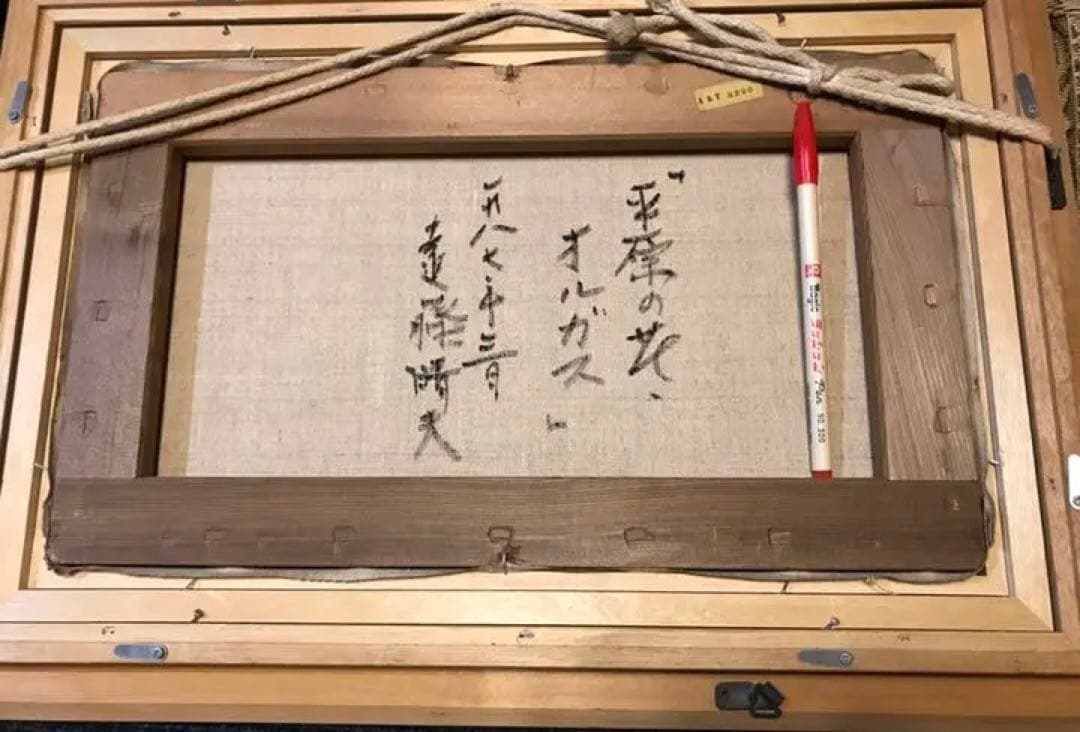 「平原の花、
オルガス」
一九八七年三月
遠藤晴夫
Pen